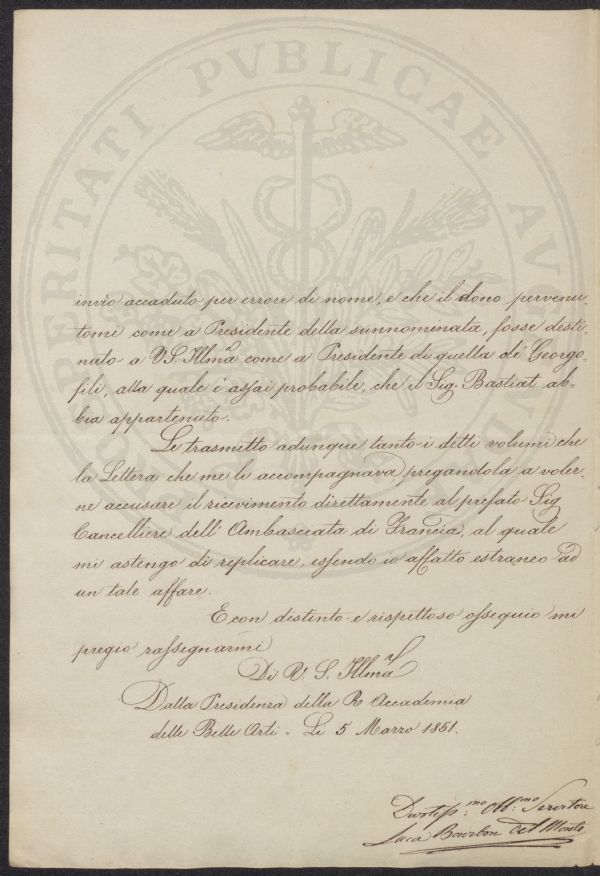 PROSPERITATI PVBLICAE AVGENDAE
invio accaduto per errore di nome, e che il dono pervenu-
tomi come a Presidente della sunnominata, fosse desti-
nato a V.S. Illma come a Presidente di quella de' Georgo-
fili, alla quale è assai probabile, che il Sig. Bastiat ab-
bia appartenuto.
Le trasmetto adunque tanto i detti volumi che
la Lettera che me li accompagnava pregandola a voler-
ne accusare il ricevimento direttamente al prefato Sig
Cancelliere dell' Ambasciata di Francia, al quale
mi astengo di replicare, essendo io affatto estraneo ad
un tale affare.
E con distinto e rispettoso ossequio mi
pregio rassegnarmi
Di V. S. Illma
Dalla Presidenza della R. Accademia
delle Belle Arti. Li 5 Marzo 1851.
Devotiss.mo Obb.mo Servitore
Luca Bourbon del Monte